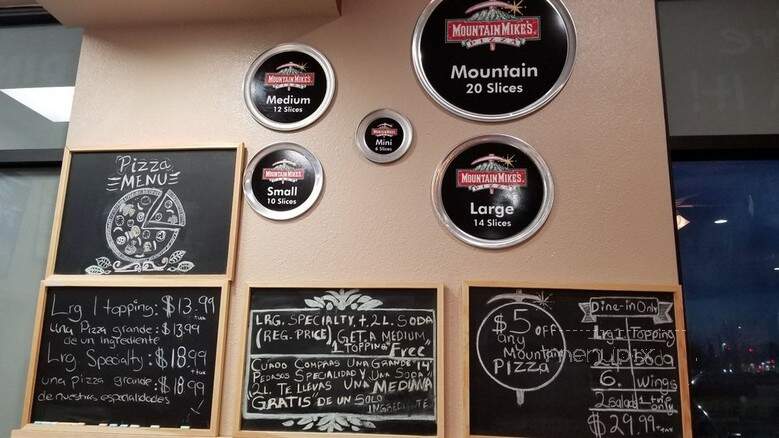 MOUNTAIN MIKE'S
PIZZA
Mountain
20 Slices
MOUNTAIN MIKE'S
PIZZA
Medium
12 Slices
MOUNTAIN MIKE'S
Mini
6 Slices
MOUNTAIN MIKE'S
PIZZA
Small
10 Slices
MOUNTAIN MIKE'S
PIZZA
Large
14 Slices
Pizza
MENU
Lrg 1 topping: $13.99
+tax
una Pizza grande: $13.99
de un ingrediente
Lrg Specialty: $18.99
+tax
una pizza grande: $18.99
de nuestras especialidades
LRG. SPECIALTY, + 2L. SODA
(REG. PRICE) GET A MEDIUM
1 TOPPING Free
CUANDO COMPRAS UNA GRANDE "14"
PEDASOS SPECIALIDAD Y UNA SODA
2L. TE LLEVAS UNA MEDIUMA
GRATIS" DE UN SOLO
INGREDIENTE
$5 OFF
any
Mountain
PIZZA
Dine-in Only
Lrg 1 Topping
2L Soda
6. wings
2 salad 1 trip
only
$29.99 +tax
menupix